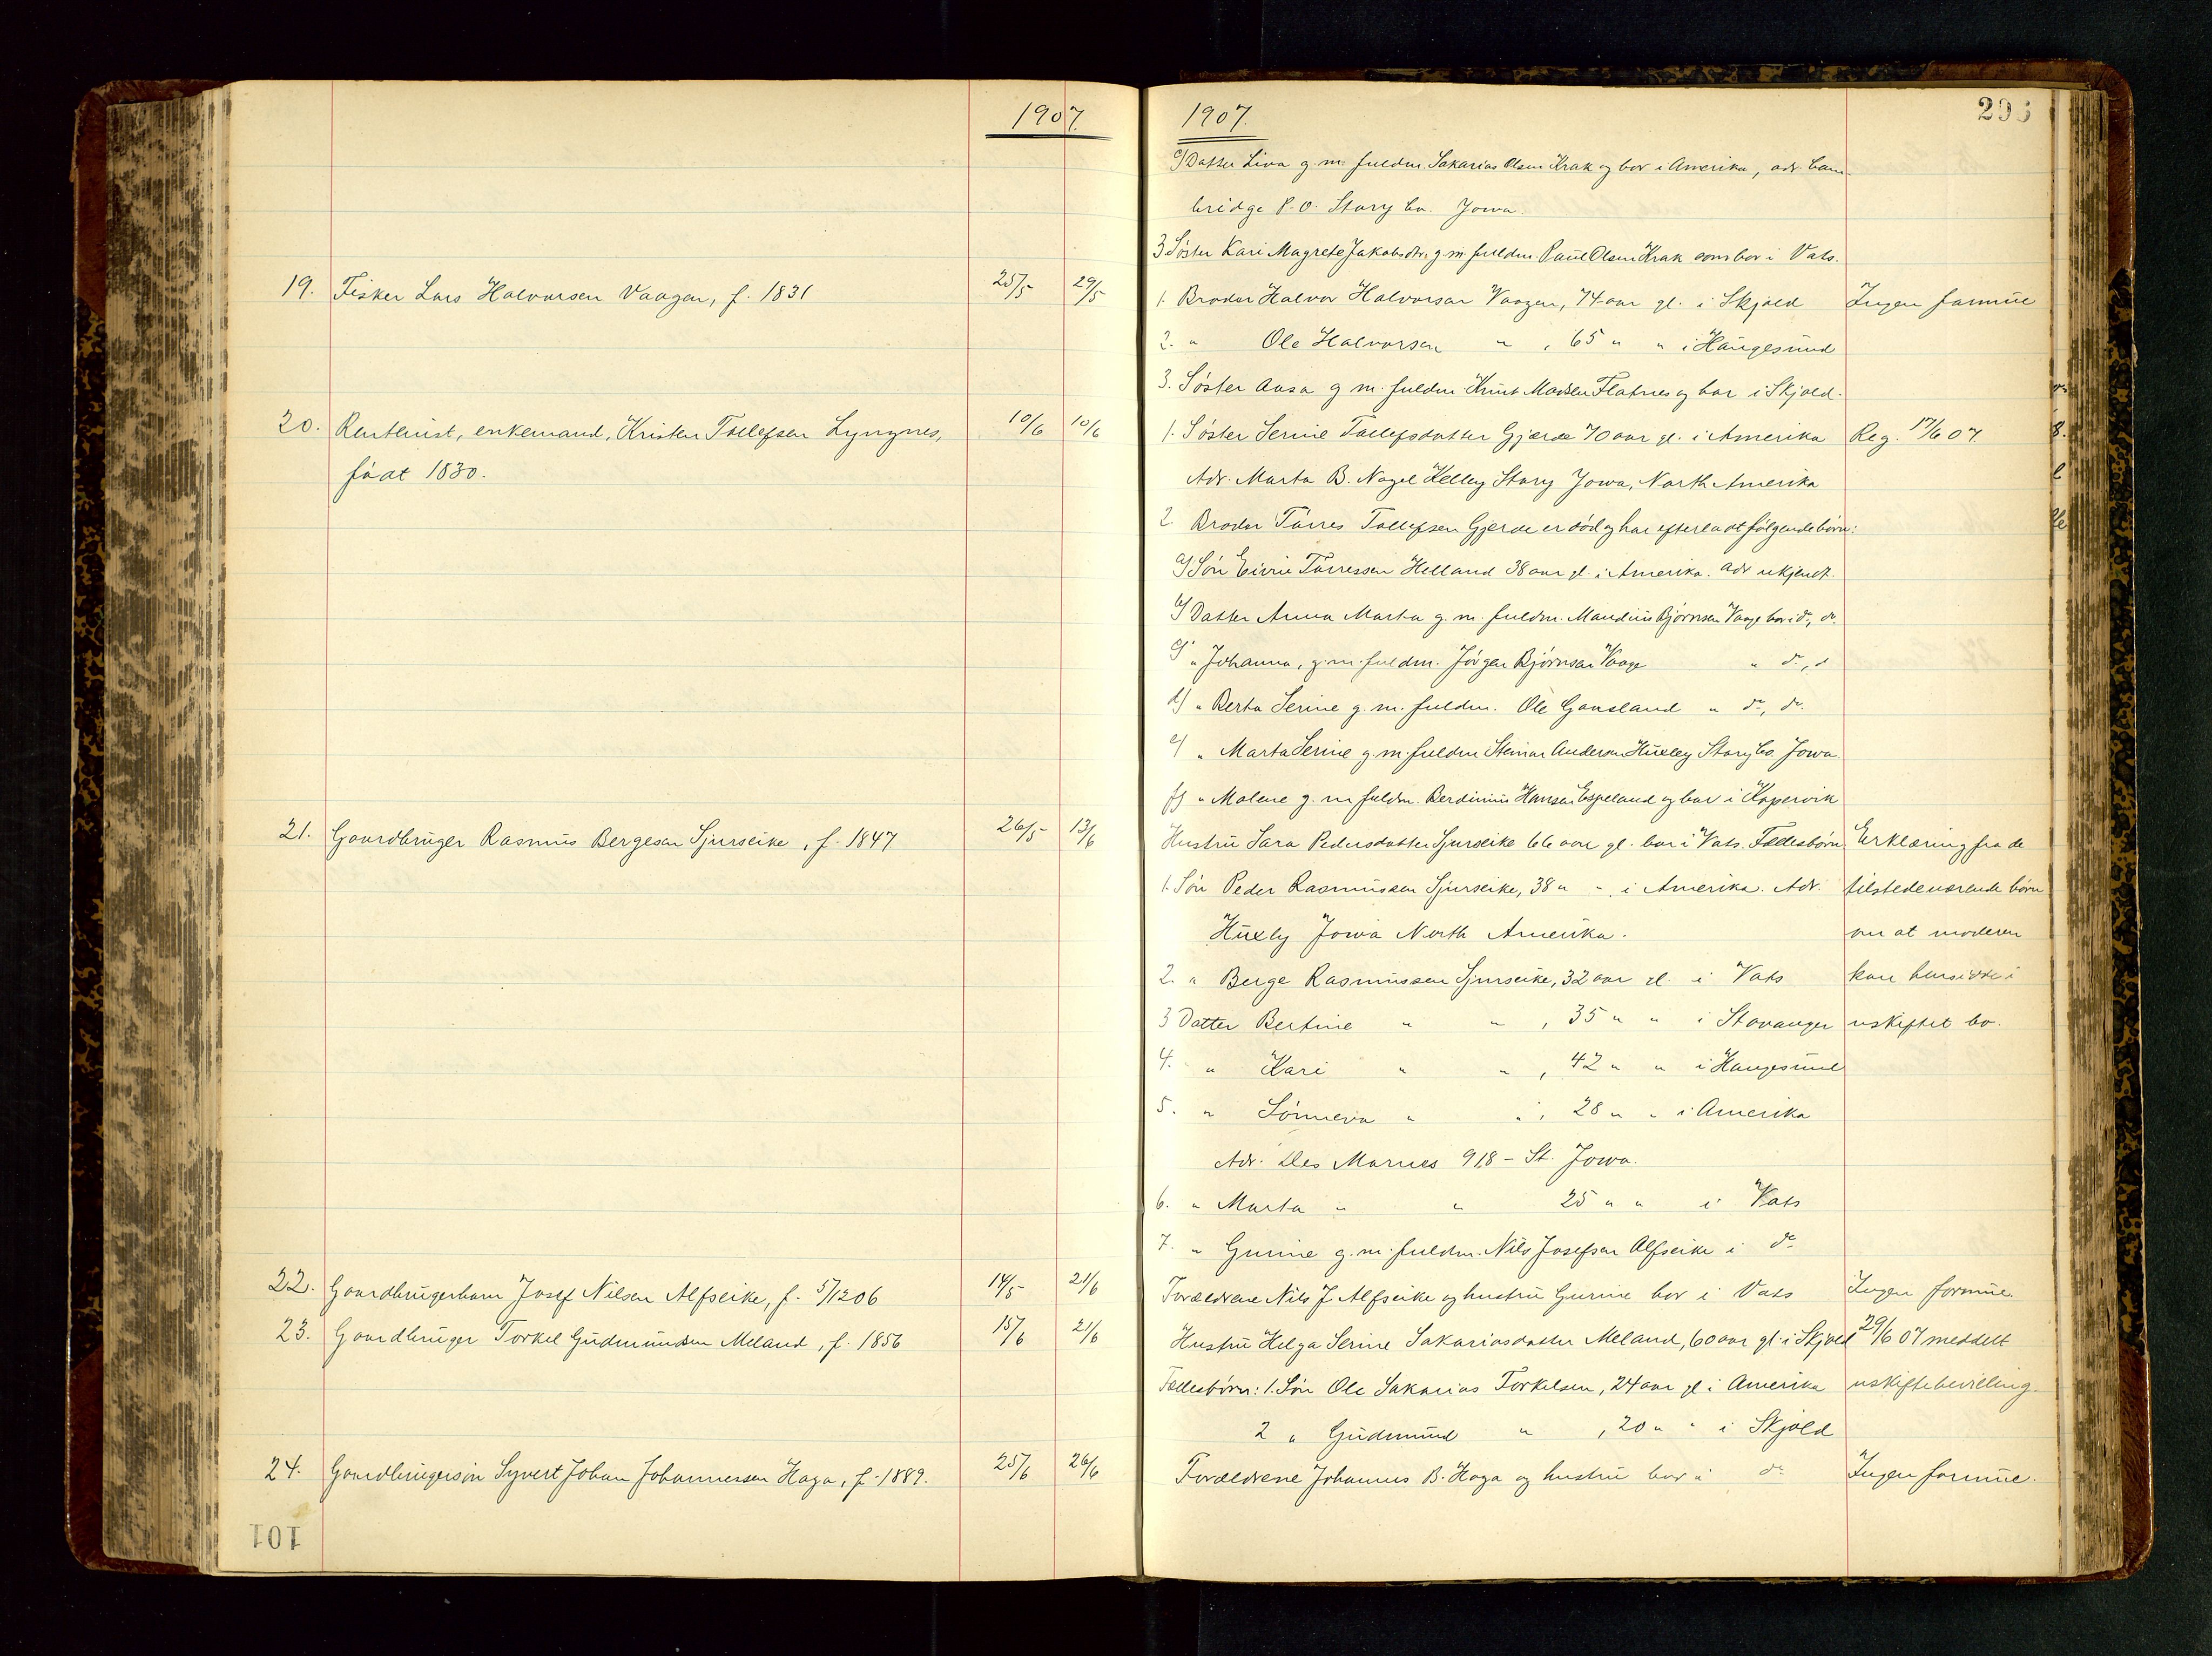 1907.
19. Fisker Lars Halvorsen Vaagen, f. 1831 25/5 29/5
20. Rentenist, enkemand, Kristen Tollefsen Lyngnes, 10/6 10/6
födt 1830.
21. Gaardbruger Rasmus Bergesen Sjurseike, f. 1847 26/5 13/6
22. Gaardbrugerbarn Josef Nilsen Alfseike, f. 5/1206 14/5 21/6
23. Gaardbruger Torkel Gudmundsen Meland, f. 1856 15/6 21/6
24. Gaardbrugersön Syvert Johan Johannessen Haga, f. 1889. 25/6 26/6
101
1907. 293
c) Datter Liva g. m. fuldm. Sakarias Olsen Krak og bor i Amerika, adr. Cam-
bridge P.O. Story Co. Jowa.
3 Söster Kari Magrete Jakobsdtr. g. m. fuldm. Paul Olsen Krak som bor i Vats.
1. Broder Halvor Halvorsen Vaagen, 74 aar gl. i Skjold Ingen formue
2. " Ole Halvorsen " , 65 " " i Haugesund
3. Söster Aasa g. m. fuldm. Knut Madsen Flatnes og bor i Skjold.
1. Söster Serine Tollefsdatter Gjerde 70 aar gl. i Amerika Reg. 17/6 07.
Adr. Marta B. Nagel Kelley Story Jowa, North Amerika
2. Broder Törres Tollefsen Gjerde er död og har efterladt fölgende börn:
a) Sön Törressen Helland 38 aar gl. i Amerika. Adr ukjendt.
b) Datter Anna Marta g. m. fuldm. Mandius Björnsen Vaage bor i do, do.
c) " Johanna, g. m. fuldm. Jörgen Björnsen Vaage " do, d
d) " Berta Serine g. m. fuldm. Ole Gansland " do, do.
e) " Marta Serine g. m. fuldm Steinar Anderson Huxley Story Co. Jowa.
f) " Malene g. m. fuldm. Berdinius Hansen Espeland og bor i Kopervik
Hustru Sara Pedersdatter Sjurseike 66 aar gl. bor i Vats. Fællesbörn Erklæring fra de
1. Sön Peder Rasmussen Sjurseike, 38 " " i Amerika. Adr. tilstedeværende börn
Huxly Jowa North Amerika. om at moderen
2. " Berge Rasmussen Sjurseike, 32 aar gl. i Vats kan hensidde i
3 Datter Bertine " " , 35 " " i Stavanger uskiftet bo.
4. " Kari " " , 42 " " i Haugesund
5. " Sönneva " " , 28 " " i Amerika
Adr. Des Moines 918 - St. Jowa.
6. " Marta " " 25 " " i Vats
7. " Gurine g. m. fuldm. Nils Josefsen Alfseike i do
Forældrene Nils J. Alfseike og hustru Gurine bor i Vats Ingen formue.
Hustru Helga Serine Sakariasdatter Meland, 60 aar gl. i Skjold 29/6 07 meddelt
Fællesbörn: 1. Sön Ole Sakarias Torkelsen, 24 aar gl i Amerika uskiftebevilling.
2 " Gudmund " , 20 " " i Skjold
Forældrene Johannes B. Haga og hustru bor i do Ingen formue.